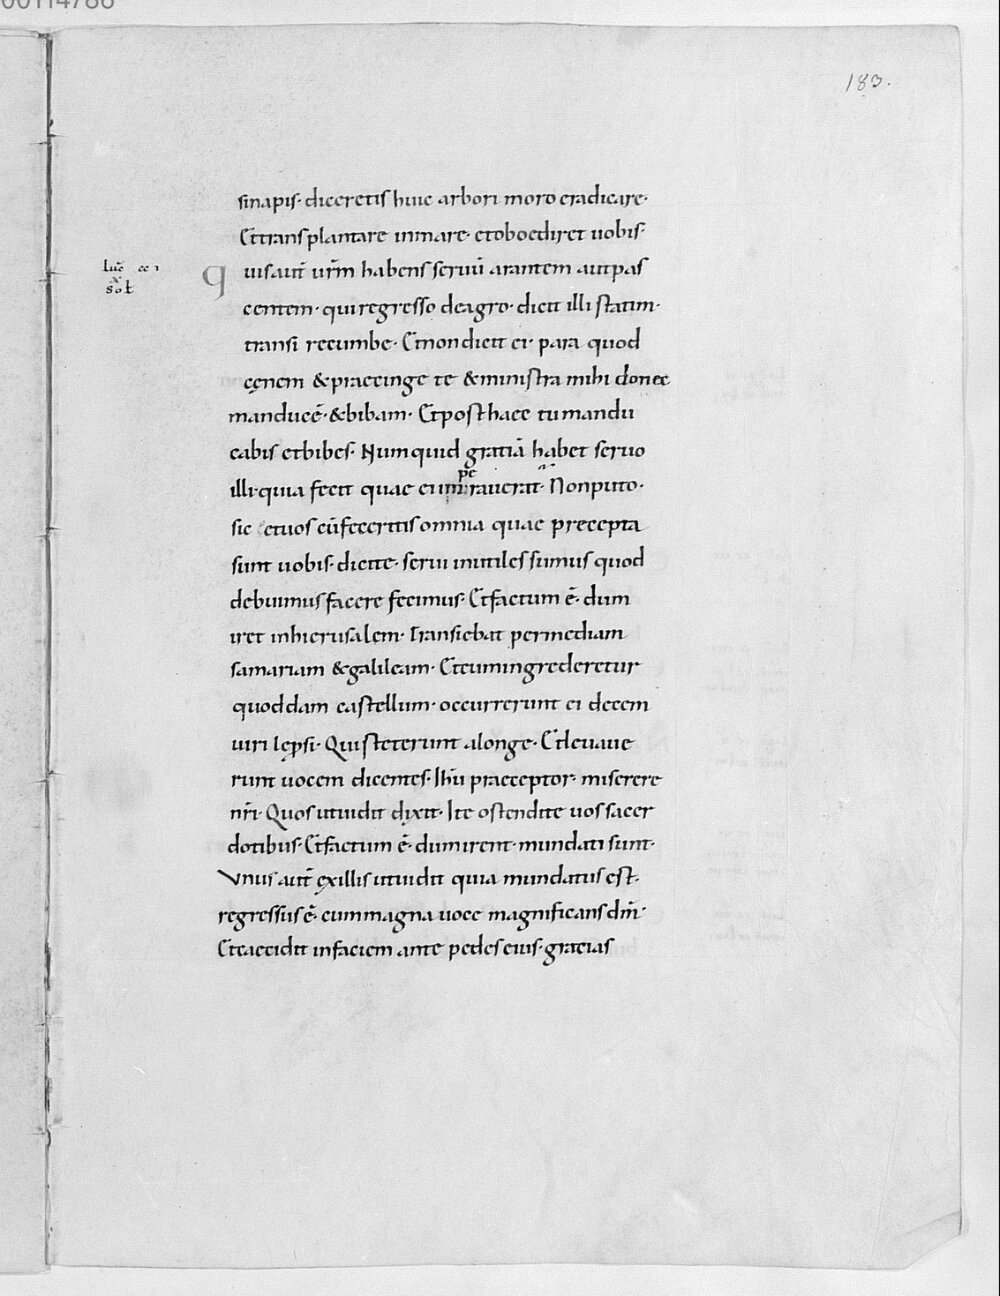 00114786
183.
sinapis· diceretis huic arbori moro eradicare·
Et transplantare inmare· et oboediret uobis·
Luc̄ cc ı
x
sol
Quis aut̄ ur̄m habens seruū arantem aut pas
centem· qui regresso deagro· dicit illi statim·
transi recumbe· Et non dicit ei· para quod
cęnem & praecinge te & ministra mihi donec
manducē· & bibam· Et post haec tu mandu
cabis et bibes· Numquid gratiā habet seruo
illi· quia fecit quae eı imperauerat· Non puto·
sic et uos cū feceritis omnia quae precepta
sunt uobis· dicite· serui inutiles sumus quod
debuimus facere fecimus· Et factum ē· dum
iret inhierusalem· Transiebat per mediam
samariam & galileam· Et cum ingrederetur
quoddam castellum· occurrerunt ei decem
uiri lępsi· Qui steterunt alonge· Et leuaue
runt uocem dicentes· Ihū praeceptor· miserere
nr̄i· Quos utuidit dixit· Ite ostendite uos sacer
dotibus· Et factum ē· dum irent· mundati sunt·
Vnus aut̄ ex illis utuidit quia mundatus est·
regressus ē· cum magna uoce magnificans dm̄·
Et caecidit infaciem ante pedes eius· gratias